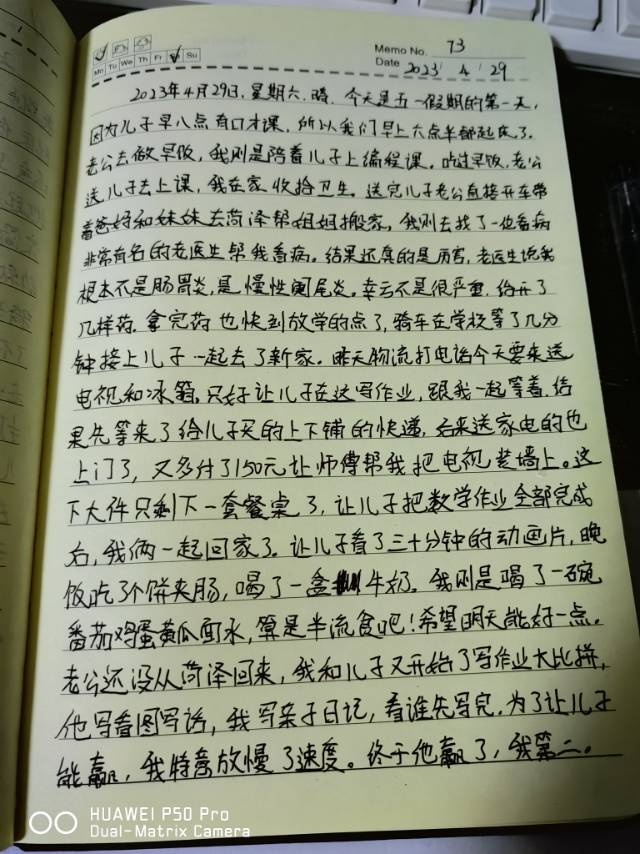 Memo No. 73
Mo Tu We Th Fr Su
Date 2023 / 4 / 29
2023年4月29日，星期六，晴，今天是五一假期的第一天，
因为儿子早八点有口才课，所以我们早上六点半都起床了。
老公去做早饭，我则是陪着儿子上编程课。吃过早饭，老公
送儿子去上课，我在家收拾卫生。送完儿子老公直接开车带
着爸妈和妹妹去菏泽帮姐姐搬家，我则去找了一他看病
非常有名的老医生帮我看病。结果还真的是厉害，老医生说我
根本不是肠胃炎，是慢性阑尾炎。幸亏不是很严重，给开了
几样药。拿完药也快到放学的点了，骑车在学校等了几分
钟接上儿子一起去了新家。昨天物流打电话今天要来送
电视和冰箱，只好让儿子在这写作业，跟我一起等着，结
果先等来了给儿子买的上下铺的快递，后来送家电的也
上门了，又多付了150元让师傅帮我把电视装墙上。这
下大件只剩下一套餐桌了，让儿子把数学作业全部完成
后，我俩一起回家了。让儿子看了三十分钟的动画片，晚
饭吃了个饼夹肠，喝了一盒牛奶。我则是喝了一碗
番茄鸡蛋黄瓜面水，算是半流食吧！希望明天能好一点。
老公还没从菏泽回来，我和儿子又开始了写作业大比拼，
他写看图写话，我写亲子日记，看谁先写完。为了让儿子
能赢，我特意放慢了速度。终于他赢了，我第二。
HUAWEI P50 Pro
Dual-Matrix Camera